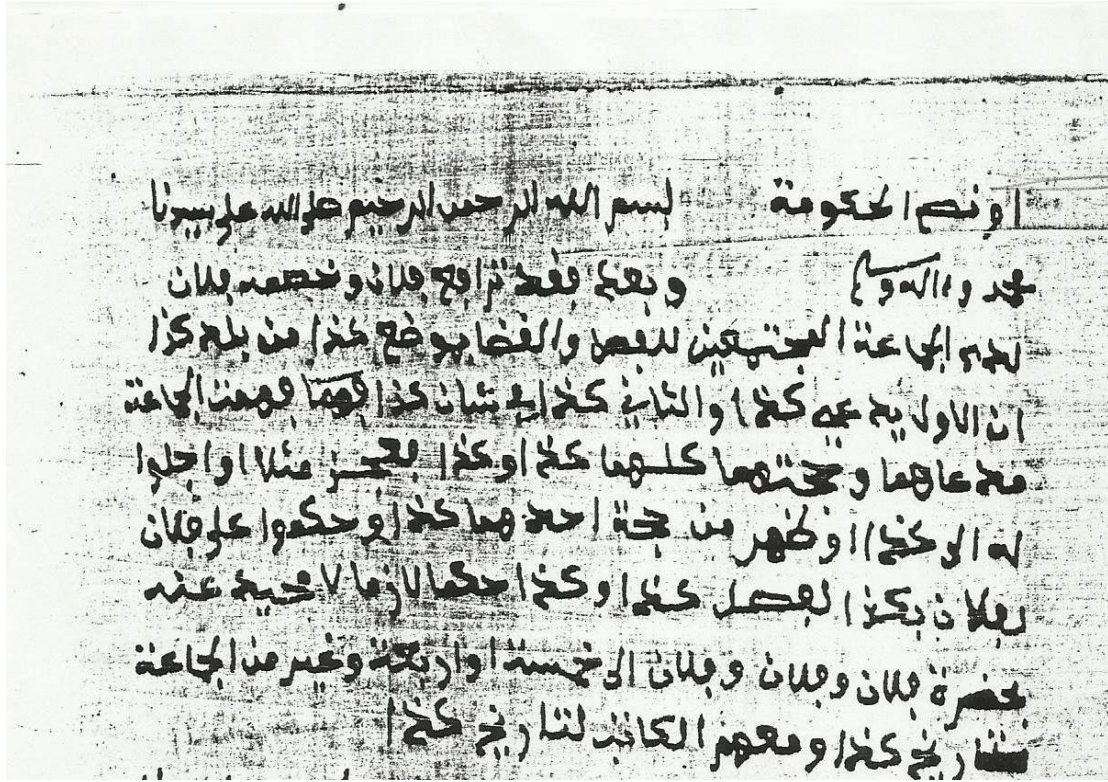 او نص الحكومة بسم الله الرحمن الرحيم صلى الله على سيدنا
محمد وءاله وسلم وبعد فقد ترافع فلان وخصمه فلان
لدى الجماعة المجتمعين للفصل والقضا بموضع كذا من بلد كذا
ان الاول يدعي كذا والثاني كذا في شان كذا فهمت الجماعة
مدعاهما وحجتهما كلهما كذا وكذا مثلا او اجلوا
له الى كذا او ظهر من حجة احدهما كذا وحكموا على فلان
لفلان بكذا لفصل كذا وكذا حكما لازما لا محيد عنه
بحضرة فلان وفلان وفلان الى خمسة او اربعة وغير من الجماعة
بتاريخ كذا ومعهم الكاتب لتاريخ كذا